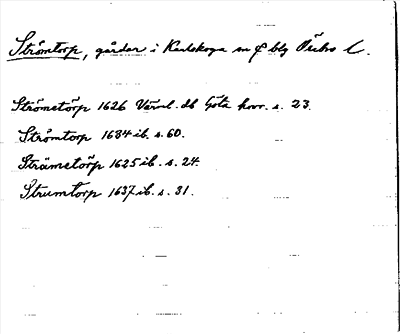 Strömtorp, gårdar i Karlskoga sn o blg Örebro l.
Strömetörp 1626 Värml. db Göta hovr. s. 23.
Strömtorp 1684 ib. s. 60.
Strämetörp 1625 ib. s. 24.
Strumtorp 1637 ib. s. 31.